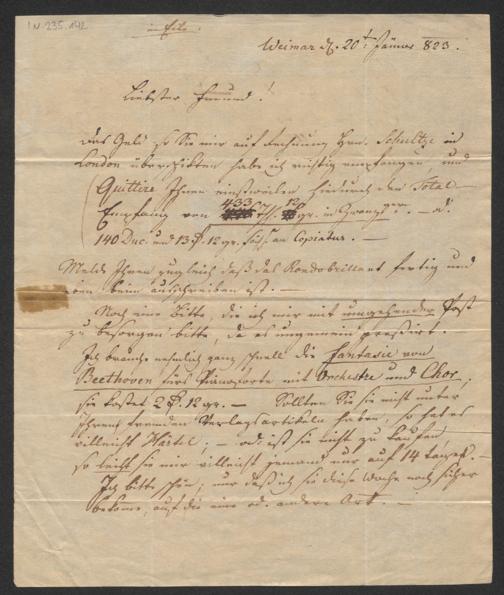 I.N. 235.142
in Eile.
Weimar d. 20t Jänner 823.
Liebster Freund!
Das Geld so Sie mir auf Rechnung Hrn. Schultze in
London überschickten habe ich richtig empfangen, und
Quittire Ihnen einstweilen hiedurch den Total
Empfang von 433 12 gr. in Zwanzgern. — od.
140 Duc. und 13 12 gr. Sächs. an Copiatur. —
Melde Ihnen zugleich daß das Rondobrillant fertig und
beim ausschreiben ist. —
Noch eine Bitte, die ich mir mit umgehender Post
zu besorgen bitte, da es ungemein pressirt.
Ich brauche nehmlich ganz schnell die Fantasie von
Beethoven fürs Pianoforte mit Orchestre und Chor,
sie kostet 2 12 gr. — Sollten Sie sie nicht unter
Ihren fremden Verlagsartikeln haben, so hat es
vielleicht Härtel; — od. ist sie nicht zu kaufen,
so leiht sie mir vielleicht jemand nur auf 14 Tage. —
Ich bitte schön; nur daß ich sie diese Woche noch sicher
bekome, auf die eine od. andere Art. —